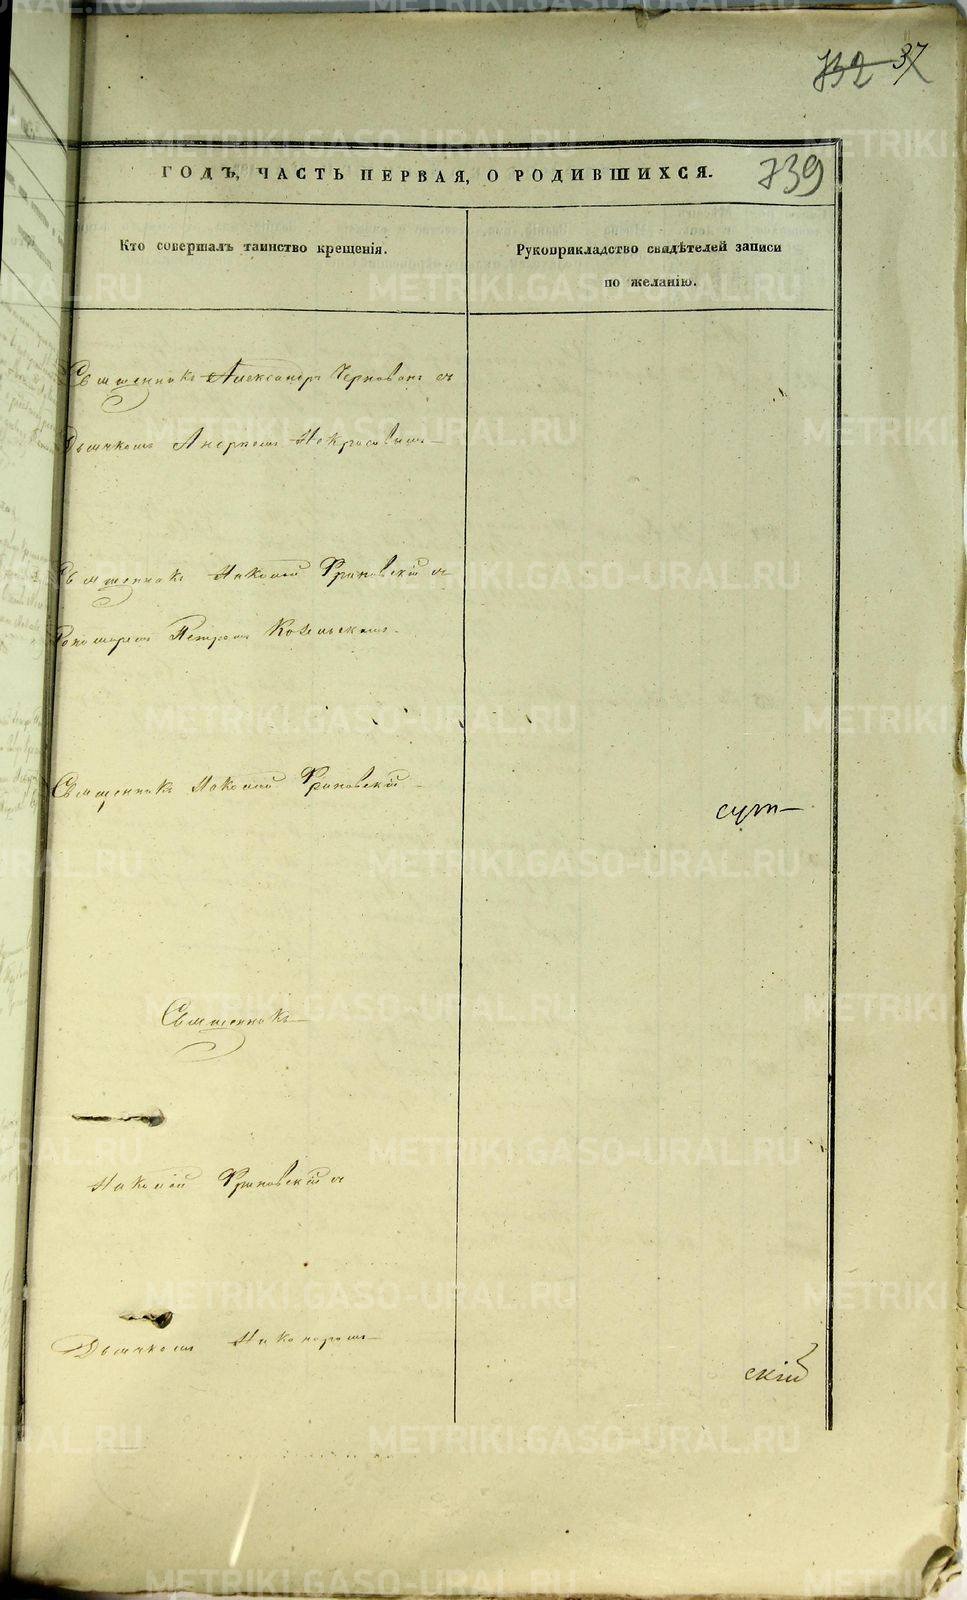 732 37
739
ГОДЪ, ЧАСТЬ ПЕРВАЯ, О РОДИВШИХСЯ.
Кто совершалъ таинство крещенія.
Рукоприкладство свидѣтелей записи
по желанію.
Священникъ Александръ Черновъ съ
Дьячкомъ Некрасовымъ
Священникъ Николай Франовскій съ
Пономаремъ Петромъ
Священникъ Николай Франовскій
сут
Священникъ
Николай Франовскій съ
Дьячкомъ Никаноромъ
скій
METRIKI.GASO-URAL.RU